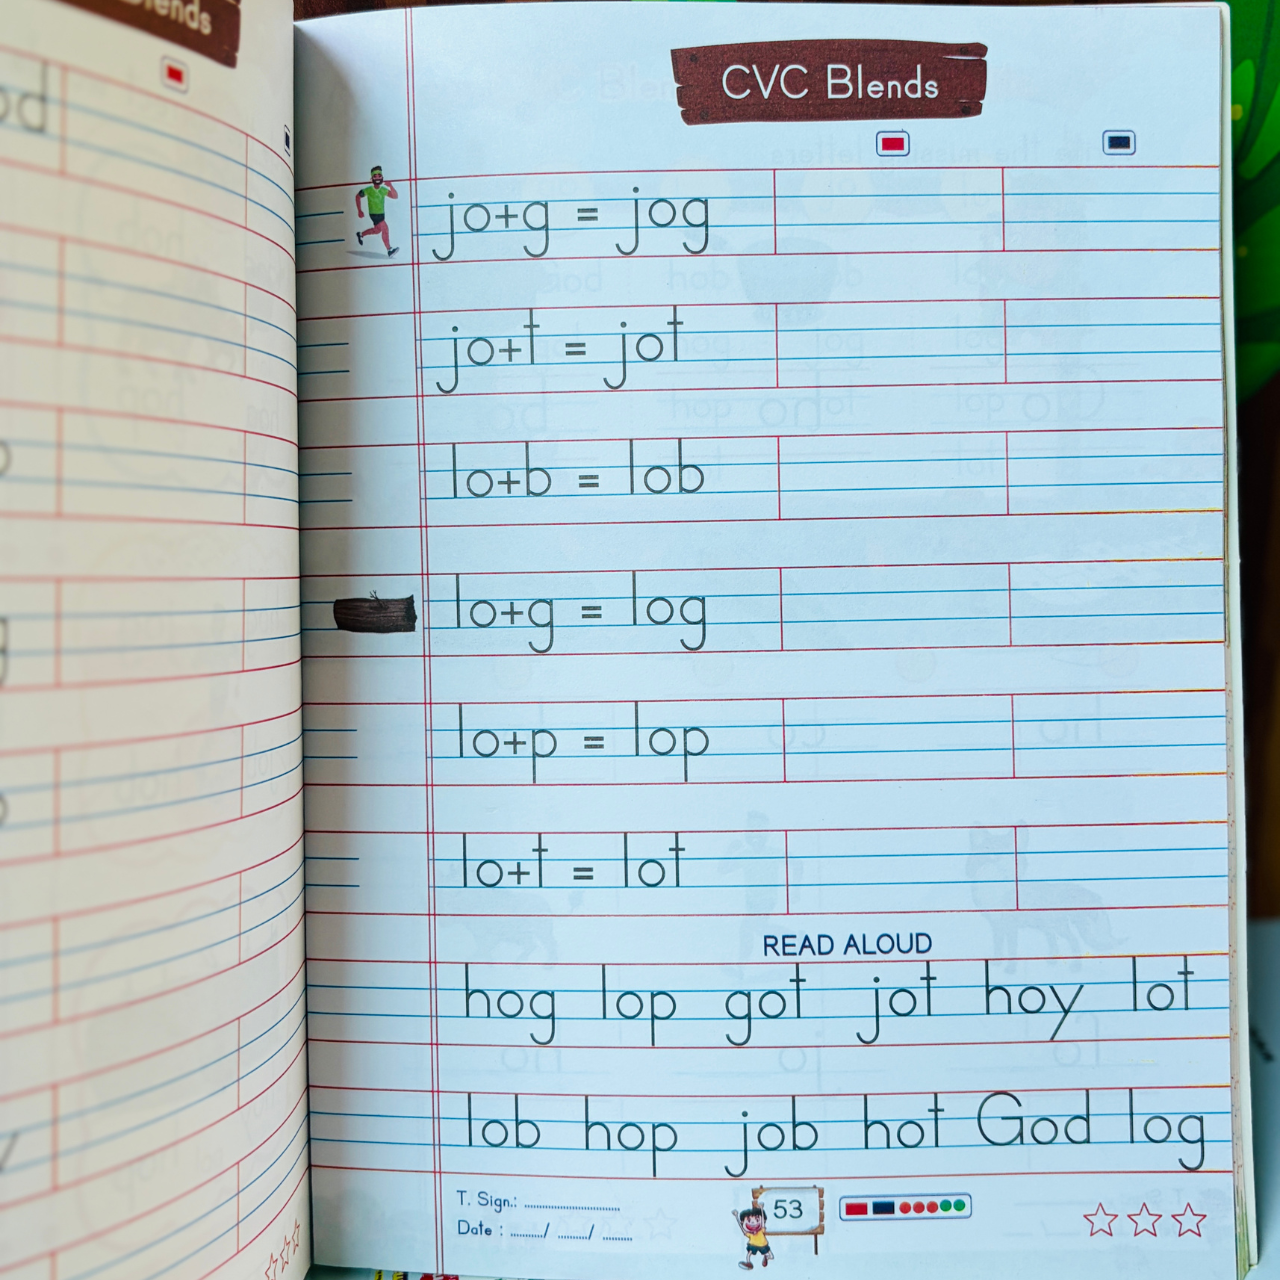 CVC Blends
jo+g = jog
jo+t = jot
lo+b = lob
lo+g = log
lo+p = lop
lo+t = lot
READ ALOUD
hog lop got jot hoy lot
lob hop job hot God log
T. Sign.: ........................
Date : ........./ ......../ ........
53